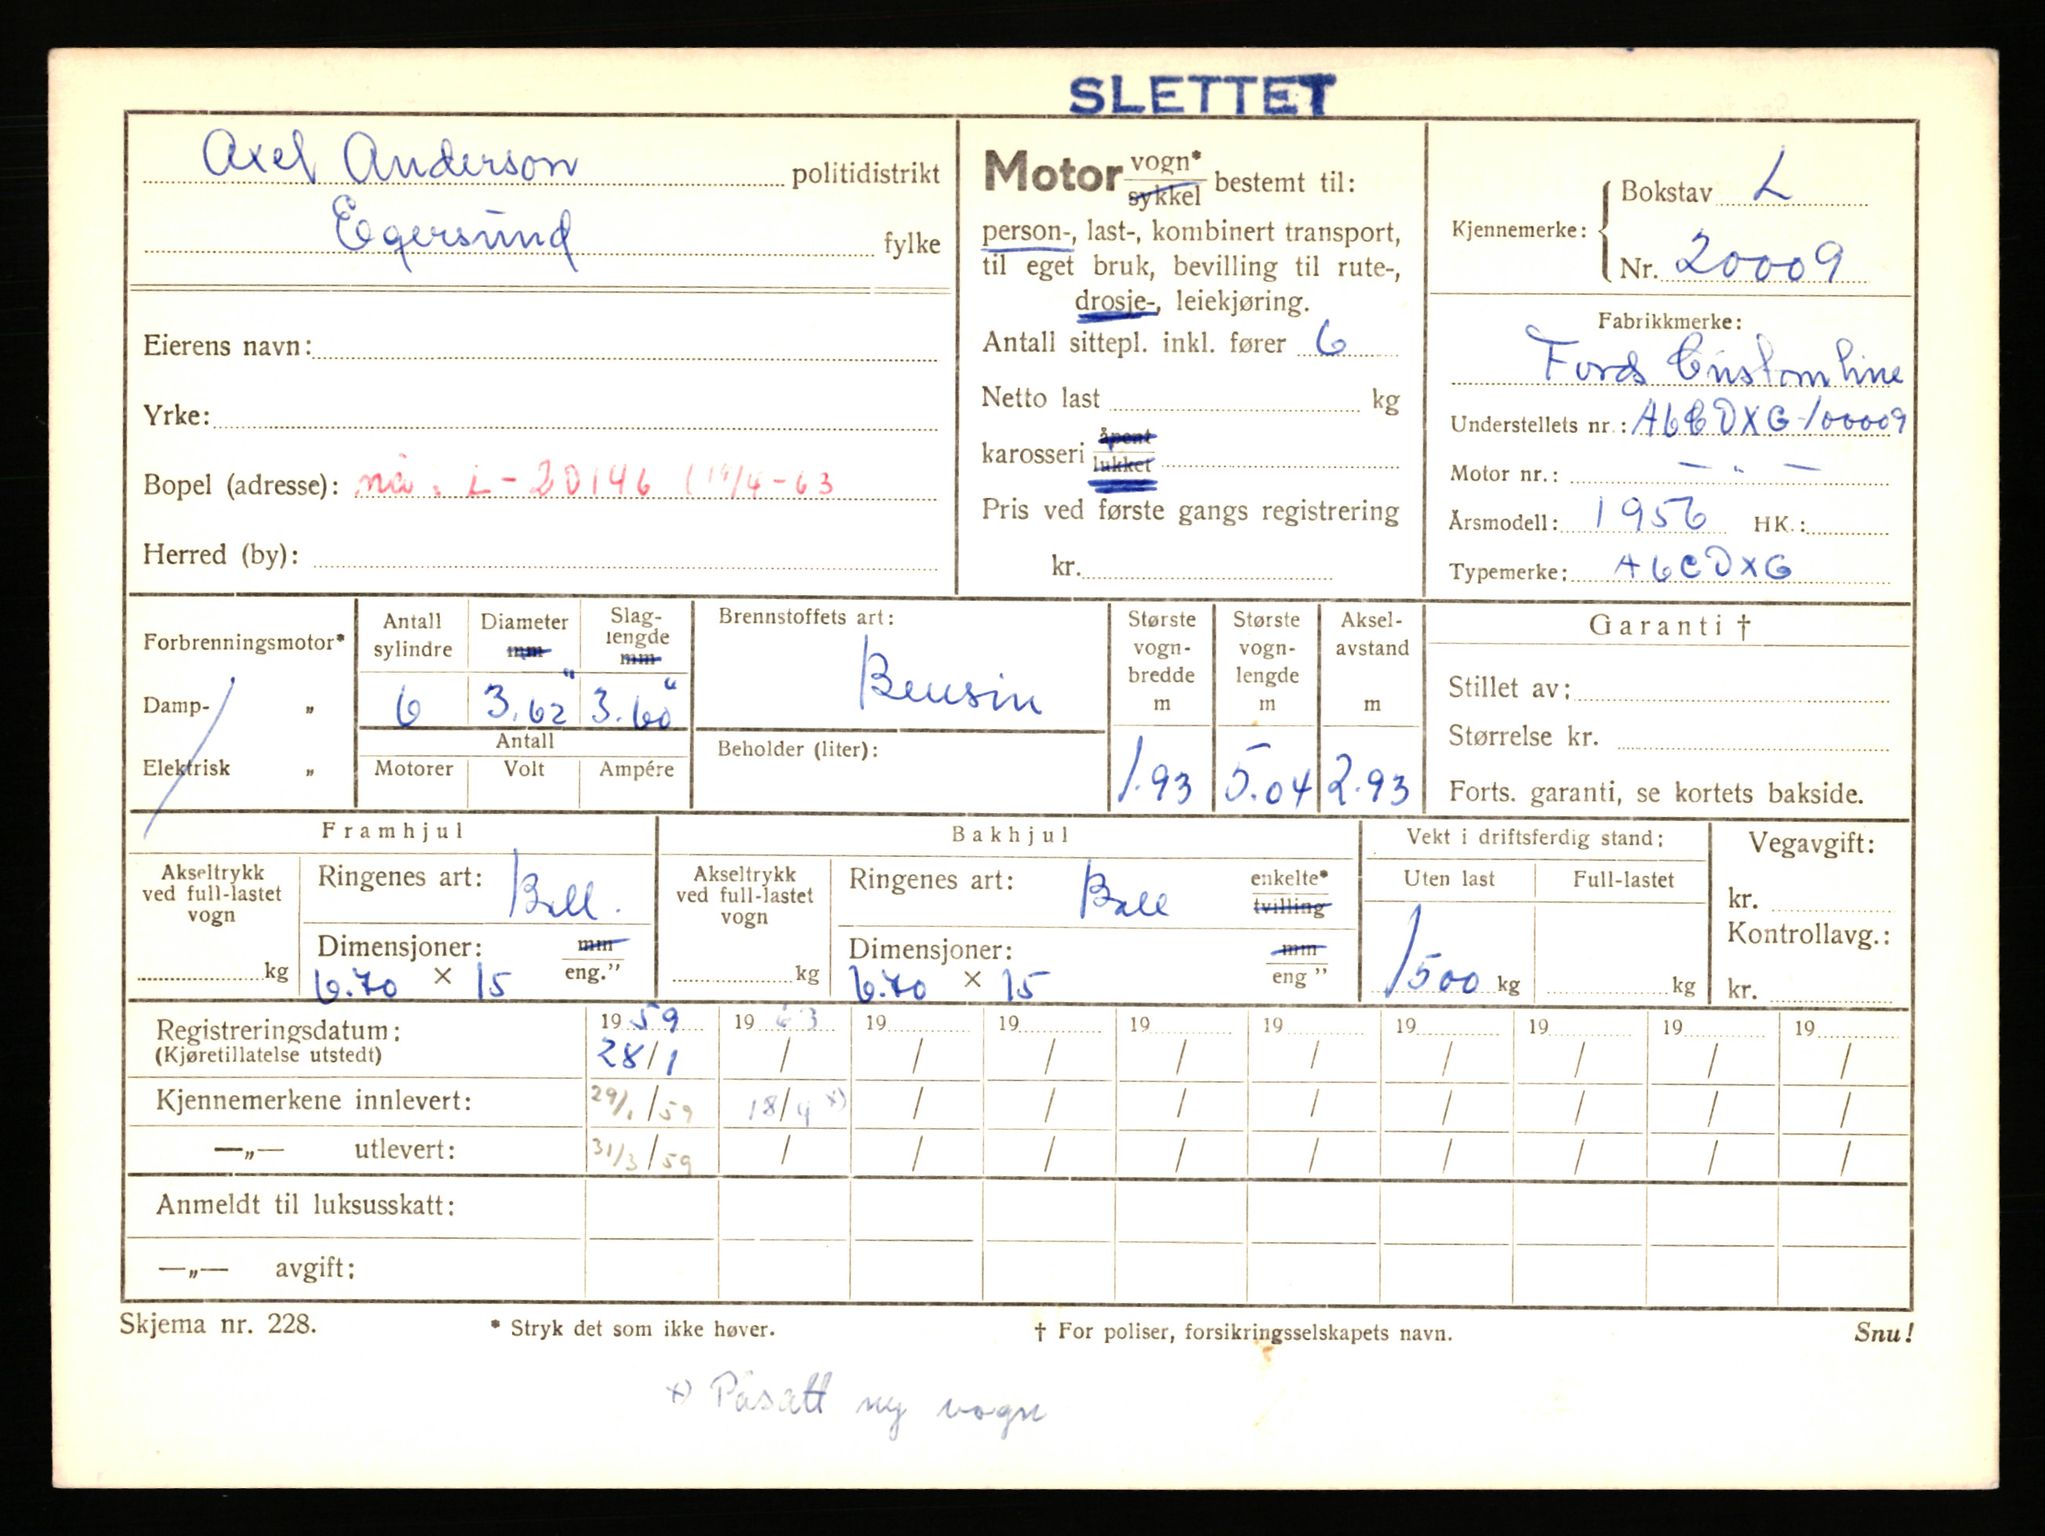 SLETTET
Axel Anderson politidistrikt
Egersund fylke
Eierens navn:
Yrke:
Bopel (adresse): nå. L-20146 (19/4-63
Herred (by):
Motor vogn* sykkel bestemt til:
person-, last-, kombinert transport,
til eget bruk, bevilling til rute-,
drosje-, leiekjøring.
Antall sittepl. inkl. fører 6
Netto last kg
karosseri åpent lukket
Pris ved første gangs registrering
kr.
Kjennemerke: Bokstav L
Nr. 20009
Fabrikkmerke:
Fords Customline
Understellets nr.: A6CDXG-100009
Motor nr.: — " —
Årsmodell: 1956 HK.:
Typemerke: A6CDXG
Forbrenningsmotor*
Damp- „
Elektrisk „
Antall sylindre
Diameter mm
Slaglengde mm
6 3.62" 3.60"
Antall
Motorer Volt Ampére
Brennstoffets art:
Bensin
Beholder (liter):
Største vognbredde m
1.93
Største vognlengde m
5.04
Akselavstand m
2.93
Garanti †
Stillet av:
Størrelse kr.
Forts. garanti, se kortets bakside.
Framhjul
Akseltrykk ved full-lastet vogn
kg
Ringenes art: Ball.
Dimensjoner: mm
6.70 × 15 eng."
Bakhjul
Akseltrykk ved full-lastet vogn
kg
Ringenes art: Ball enkelte* tvilling
Dimensjoner: mm
6.70 × 15 eng "
Vekt i driftsferdig stand:
Uten last Full-lastet
1500 kg kg
Vegavgift:
kr.
Kontrollavg.:
kr.
Registreringsdatum: 1959 1963 19 19 19 19 19 19 19 19
(Kjøretillatelse utstedt) 28/1 / / / / / / / / /
Kjennemerkene innlevert: 29/1/59 18/4 x) / / / / / / / /
—„— utlevert: 31/3/59 / / / / / / / / /
Anmeldt til luksusskatt:
—„— avgift:
Skjema nr. 228. * Stryk det som ikke høver. † For poliser, forsikringsselskapets navn. Snu!
x) Påsatt ny vogn